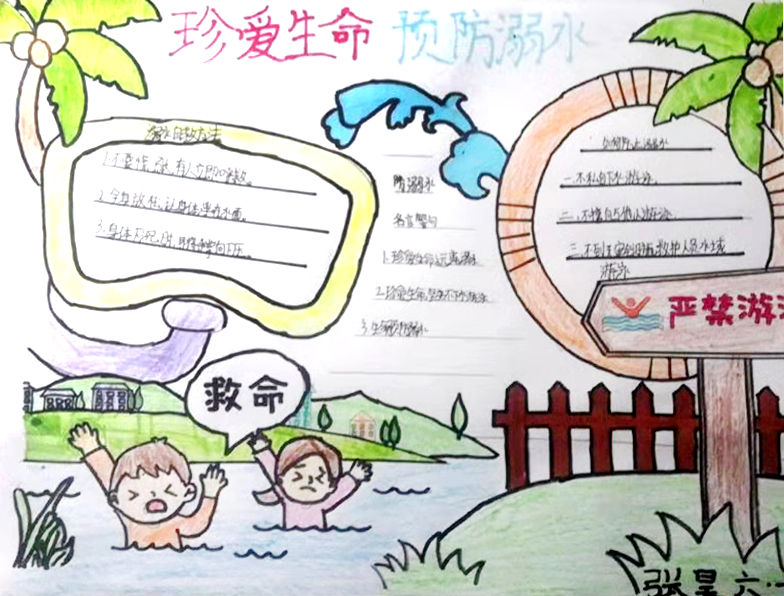 珍爱生命 预防溺水
溺水自救方法
1.不要慌,发现有人立即呼救。
2.全身放松,让身体漂浮水面。
3.身体下沉时,用掌向下压。
防溺水
名言警句
1.珍爱生命远离溺水
2.珍爱生命,坚决不下水游泳
3.生命 防溺水
如何防止溺水
一.不私自下水游泳.
二.不擅自与他人游泳.
三.不到无安全设施,救护人员水域
游泳
严禁游泳
救命
张昊 六